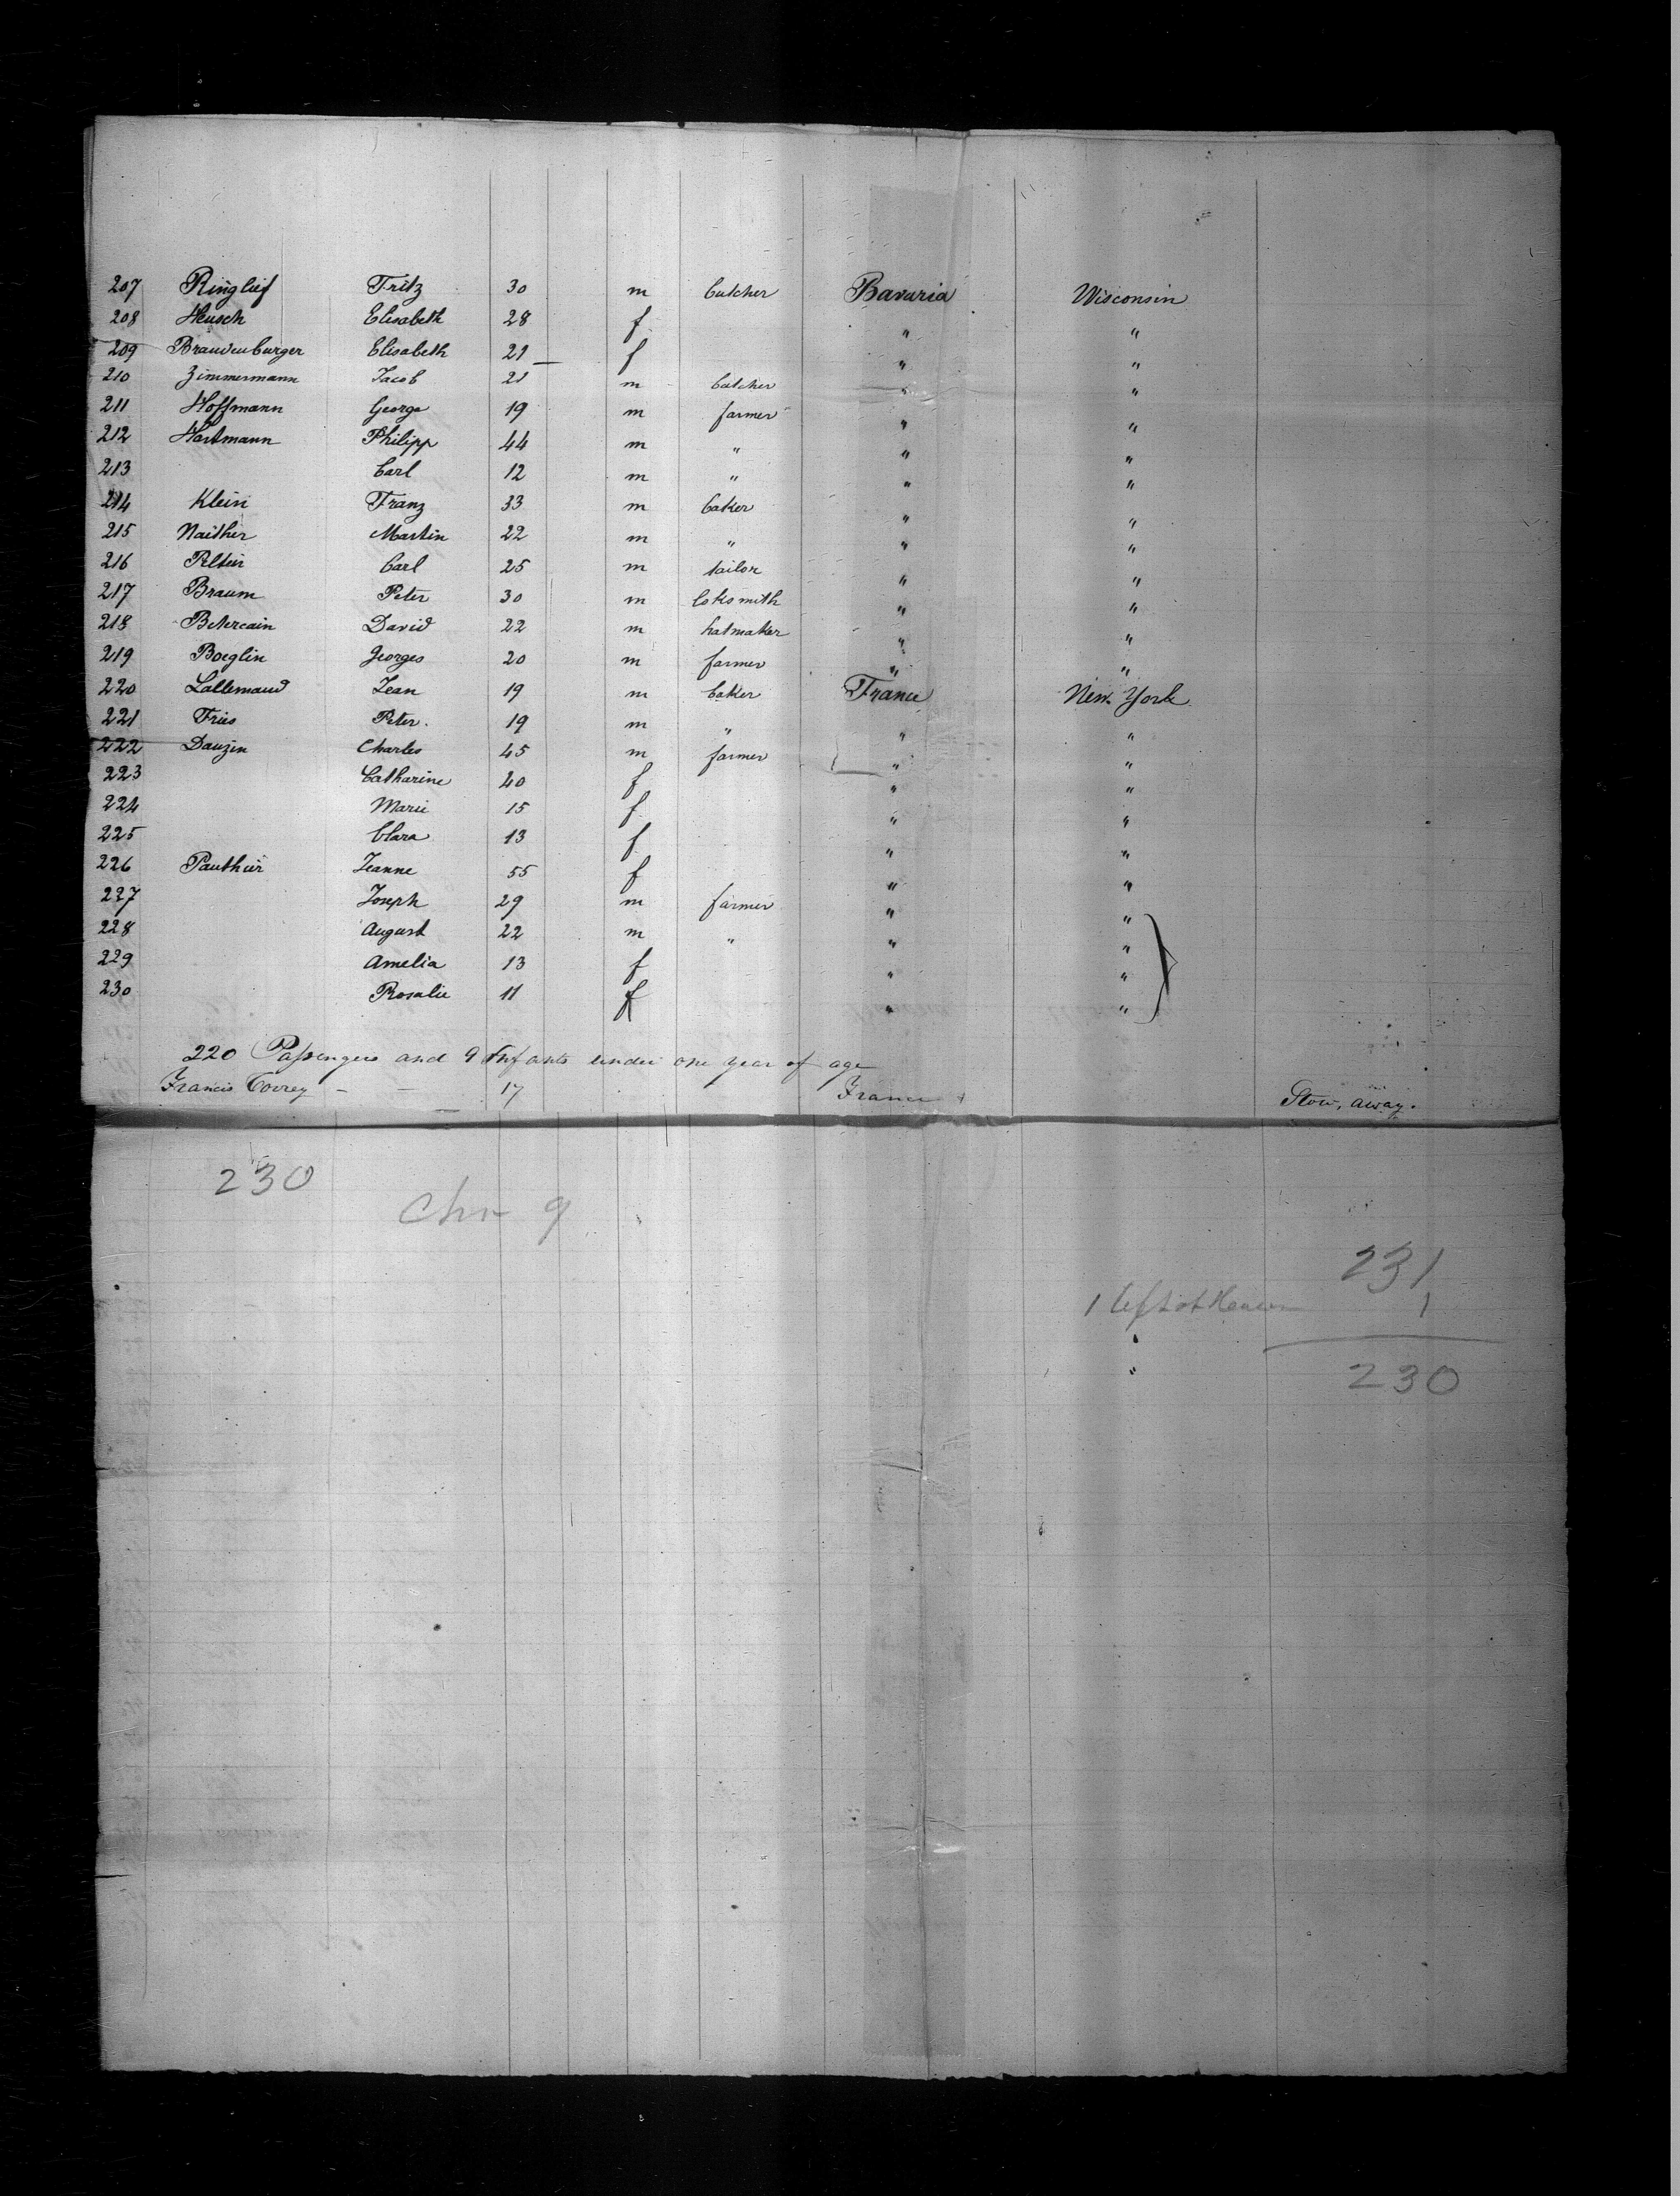 207 Ringlief Fritz 30 m butcher Bavaria Wisconsin
208 Heusch Elisabeth 28 f " "
209 Brandenburger Elisabeth 21 f " "
210 Zimmermann Jacob 21 m butcher " "
211 Hoffmann George 19 m farmer " "
212 Hartmann Philipp 44 m " " "
213 Carl 12 m " " "
214 Klein Franz 33 m baker " "
215 Naither Martin 22 m " " "
216 Carl 25 m tailor " "
217 Braum Peter 30 m loksmith " "
218 David 22 m hatmaker " "
219 Boeglin Georges 20 m farmer " "
220 Lallemand Jean 19 m baker France New York
221 Fries Peter. 19 m " " "
222 Dauzin Charles 45 m farmer " "
223 Catharine 40 f " "
224 Marie 15 f " "
225 Clara 13 f " "
226 Pauthier Jeanne 55 f " "
227 Joseph 29 m farmer " "
228 August 22 m " " "
229 Amelia 13 f " "
230 Rosalie 11 f " "
220 Passengers and 9 Infants under one year of age
Francis Torrey - - 17 France Stow, away.
230
9
231
1 left at 1
"
"
230